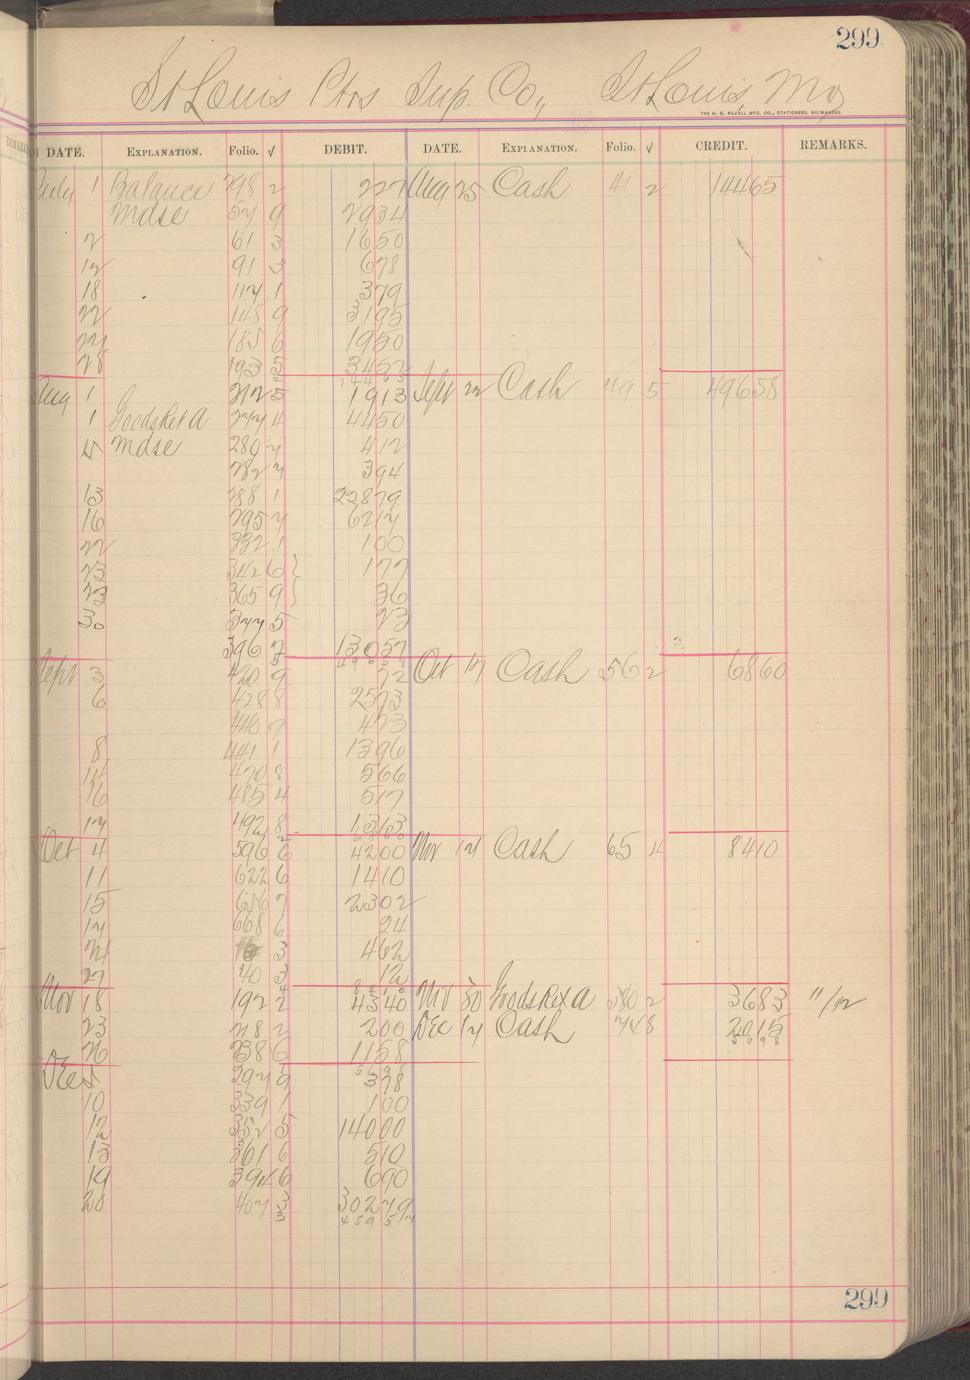 299
St Louis Ptrs Sup. Co., St Louis, Mo,
THE H. G. RAZALL MFG. CO., STATIONERS, MILWAUKEE.
DATE. EXPLANATION. FOLIO. √ DEBIT. DATE. EXPLANATION. FOLIO. √ CREDIT. REMARKS.
July 1 Balance 298 2 227 Aug 25 Cash 41 2 14465
Mdse 57 9 2934
2 61 3 1650
12 91 3 678
18 117 1 379
22 148 9 3195
185 6 1950
28 193 5 3452
Aug 1 212 5 1913 Sept 22 Cash 49 5 49658
1 Goods Ret A 277 4 4450
Mdse 280 7 412
282 7 394
13 288 1 22879
16 295 7 6217
22 332 1 100
23 342 6 177
23 365 9 36
30 377 5 23
396 7 13057
Sept 3 420 9 72 Oct 17 Cash 56 2 6860
6 428 8 2573
440 9 473
8 441 1 1396
14 470 8 566
16 485 4 517
17 492 8 1313
Oct 4 596 6 4200 Nov 17 Cash 65 4 8410
11 622 6 1410
15 656 7 2302
17 668 6 24
21 3 462
27 40 3 12
Nov 18 192 2 4340 Nov 30 Goods Ret A 380 2 3683 "/12
23 218 2 200 Dec 17 Cash 74 8 2015
26 238 6 1158
Dec 5 297 9 378
10 339 1 100
12 352 5 14000
13 361 6 510
19 394 6 690
20 407 3 30279
45957
299